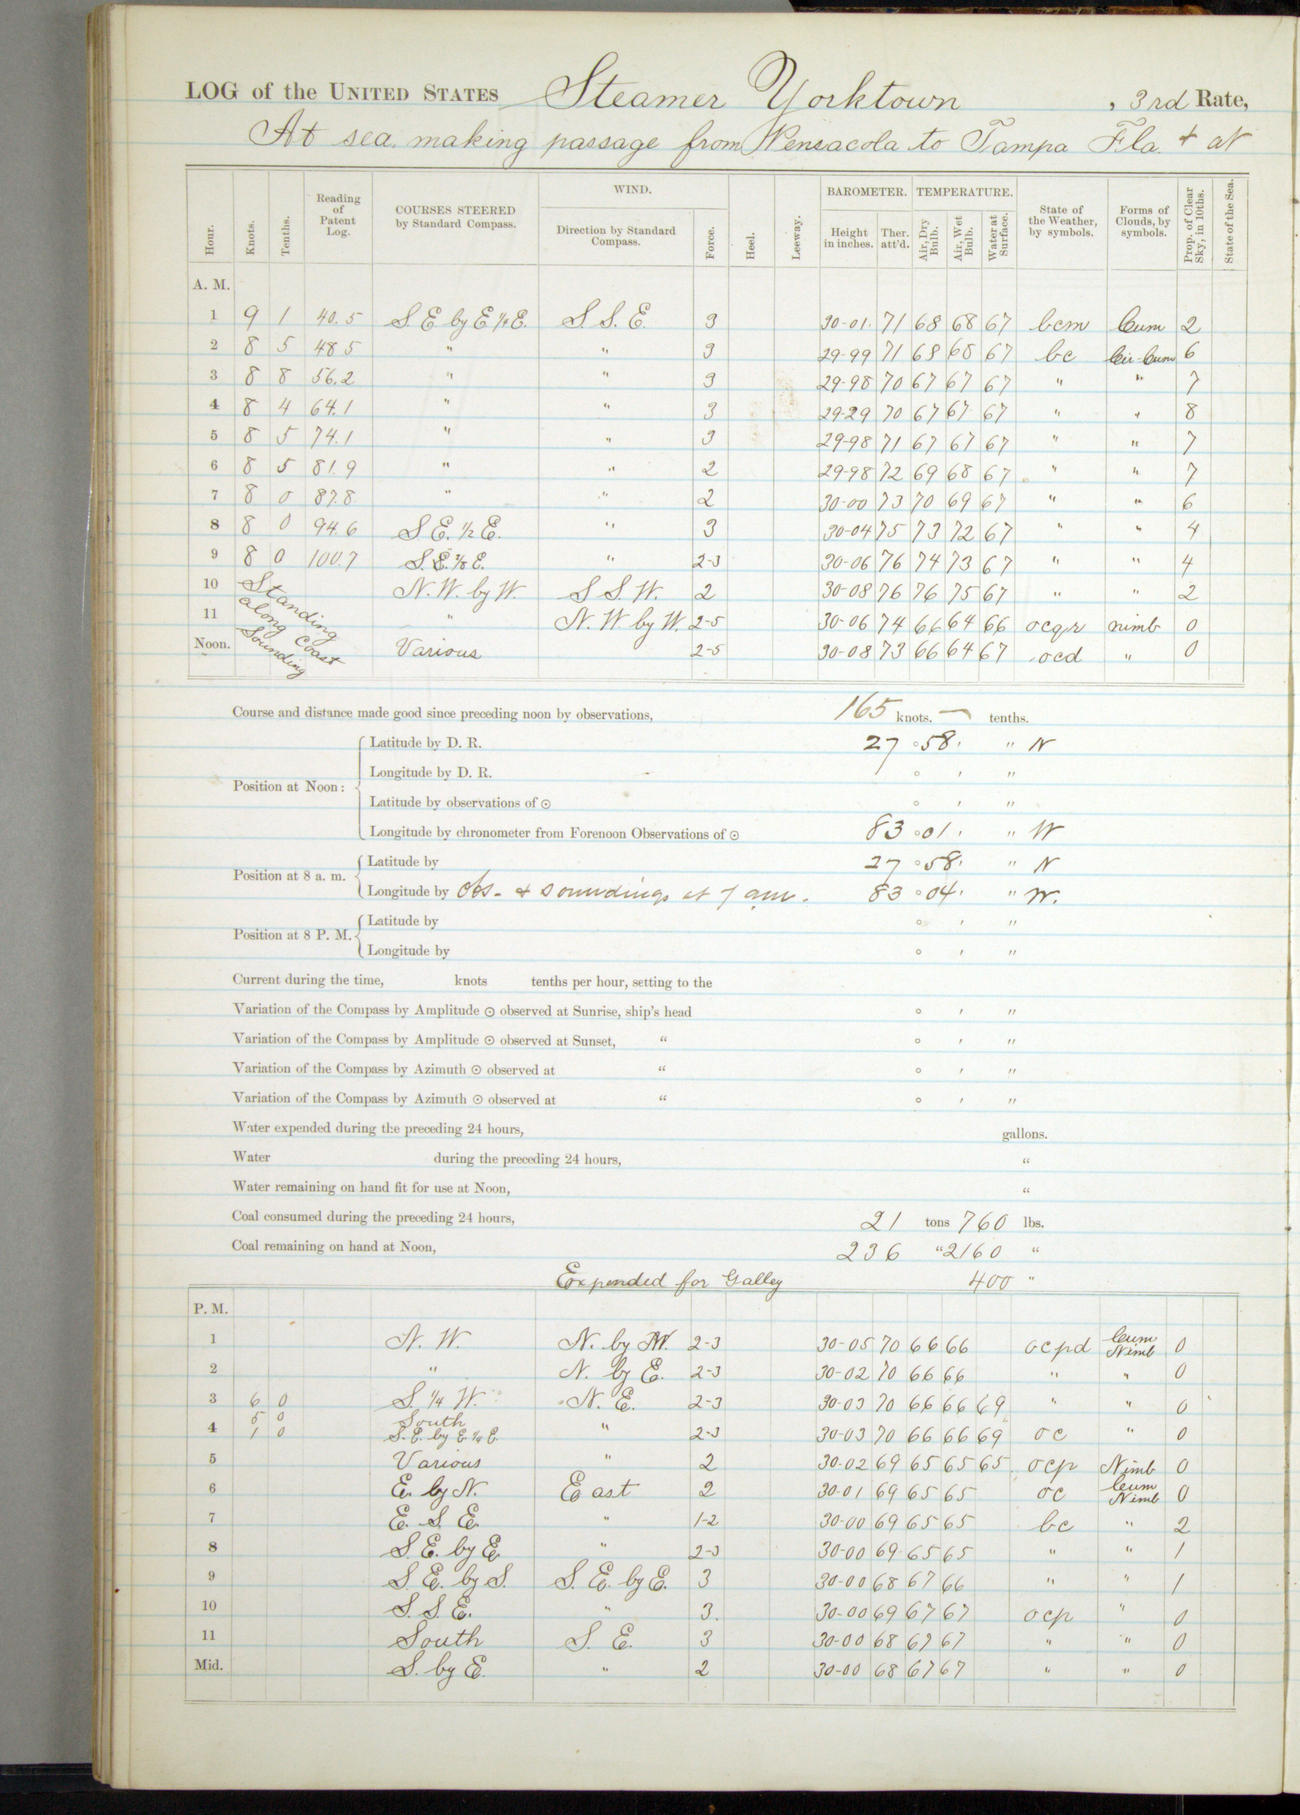 LOG of the UNITED STATES Steamer Yorktown , 3rd Rate,
At sea making passage from Pensacola to Tampa Fla. & at
Hour. Knots. Tenths. Reading of Patent Log. COURSES STEERED by Standard Compass. WIND. Direction by Standard Compass. Force. Heel. Leeway. BAROMETER. Height in inches. Ther. att'd. TEMPERATURE. Air, Dry Bulb. Air, Wet Bulb. Water at Surface. State of the Weather, by symbols. Forms of Clouds, by symbols. Prop. of Clear Sky, in 10ths. State of the Sea.
A. M.
1 9 1 40.5 S. E by E ¼ E. S. S. E. 3 30-01 71 68 68 67 bcm Cum 2
2 8 5 48.5 " " 3 29-99 71 68 68 67 bc Cir-Cum 6
3 8 8 56.2 " " 3 29-98 70 67 67 67 " " 7
4 8 4 64.1 " " 3 29-29 70 67 67 67 " " 8
5 8 5 74.1 " " 3 29-98 71 67 67 67 " " 7
6 8 5 81.9 " " 2 29-98 72 69 68 67 " " 7
7 8 0 87.8 " " 2 30-00 73 70 69 67 " " 6
8 8 0 94.6 S E. ½ E. " 3 30-04 75 73 72 67 " " 4
9 8 0 100.7 S. E. ⅞ E. " 2-3 30-06 76 74 73 67 " " 4
10 Standing N. W. by W S S. W. 2 30-08 76 76 75 67 " " 2
11 along coast " N. W by W. 2-5 30-06 74 66 64 66 ocqr nimb 0
Noon. Sounding Various 2-5 30-08 73 66 64 67 ocd " 0
Course and distance made good since preceding noon by observations, 165 knots. — tenths.
Position at Noon: Latitude by D. R. 27 ° 58 ' " N
Longitude by D. R. ° ' "
Latitude by observations of ☉ ° ' "
Longitude by chronometer from Forenoon Observations of ☉ 83 ° 01 ' " W
Position at 8 a. m. Latitude by 27 ° 58 ' " N
Longitude by Obs. & soundings at 7 am. 83 ° 04 ' " W.
Position at 8 P. M. Latitude by ° ' "
Longitude by ° ' "
Current during the time, knots tenths per hour, setting to the
Variation of the Compass by Amplitude ☉ observed at Sunrise, ship's head ° ' "
Variation of the Compass by Amplitude ☉ observed at Sunset, " ° ' "
Variation of the Compass by Azimuth ☉ observed at " ° ' "
Variation of the Compass by Azimuth ☉ observed at " ° ' "
Water expended during the preceding 24 hours, gallons.
Water during the preceding 24 hours, "
Water remaining on hand fit for use at Noon, "
Coal consumed during the preceding 24 hours, 21 tons 760 lbs.
Coal remaining on hand at Noon, 236 " 2160 "
Expended for Galley 400 "
P. M.
1 N. W. N. by W. 2-3 30-05 70 66 66 ocpd Cum Nimb 0
2 " N. by E. 2-3 30-02 70 66 66 " " 0
3 6 0 S. ¼ W. N. E. 2-3 30-03 70 66 66 69 " " 0
5 0 South
4 1 0 S. E. by E. ¼ E. " 2-3 30-03 70 66 66 69 oc " 0
5 Various " 2 30-02 69 65 65 65 ocp Nimb 0
6 E. by N. East 2 30-01 69 65 65 oc Cum Nimb 0
7 E. S. E. " 1-2 30-00 69 65 65 bc " 2
8 S. E. by E. " 2-3 30-00 69 65 65 " " 1
9 S. E. by S. S. E. by E. 3 30-00 68 67 66 " " 1
10 S. S. E. " 3. 30-00 69 67 67 ocp " 0
11 South S. E. 3 30-00 68 67 67 " " 0
Mid. S. by E. " 2 30-00 68 67 67 " " 0